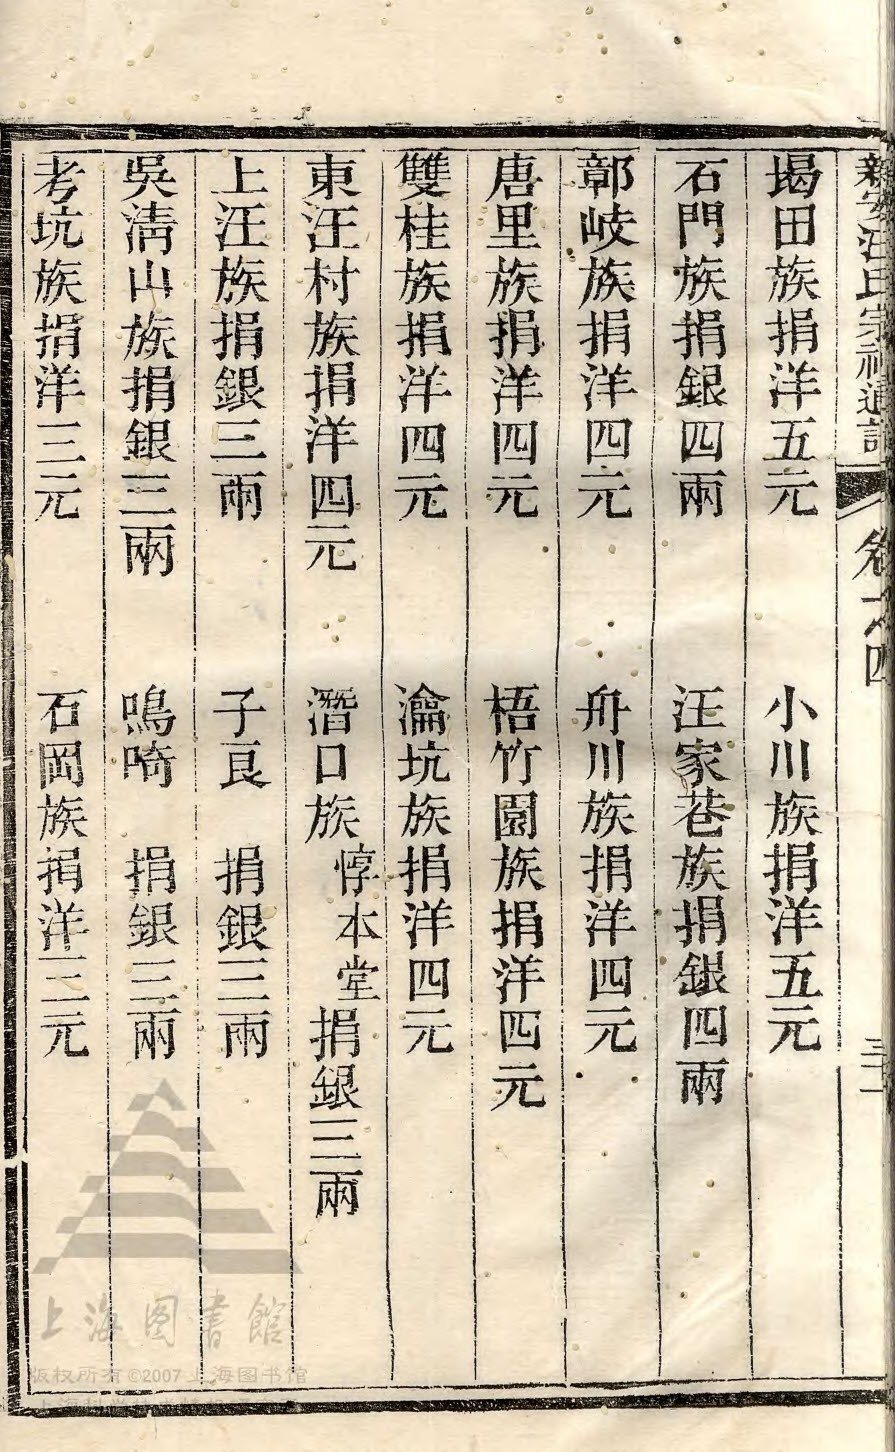 新安汪氏宗祠通譜 卷之四 三十一
堨田族捐洋五元 小川族捐洋五元
石門族捐銀四兩 汪家巷族捐銀四兩
鄣岐族捐洋四元 舟川族捐洋四元
唐里族捐洋四元 梧竹園族捐洋四元
雙桂族捐洋四元 瀹坑族捐洋四元
東汪村族捐洋四元 潛口族惇本堂捐銀三兩
上汪族捐銀三兩 子良 捐銀三兩
吳淸山族捐銀三兩 鳴啼 捐銀三兩
考坑族捐洋三元 石岡族捐洋三元
上海图書館
版权所有©2007上海图书馆